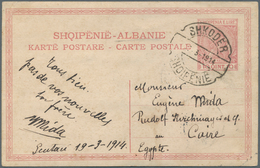 SHQIPËNIE-ALBANIE
KARTË POSTARE - CARTE POSTALE
SHKODËR
3 1914
SHQIPËNIE
Tous bien.
pas de vos nouvelles
Mida
Scutari 19-3-1914
Monsieur
Eugène Mida
Rudolf
Caire
Egypte.